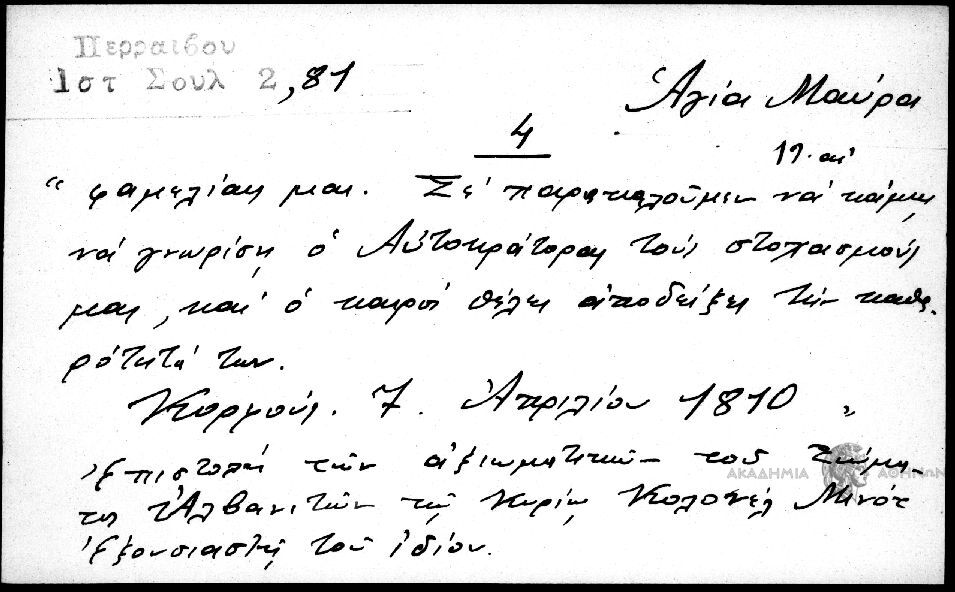 Περραιβου
1στ Σουλ 2,81
Ἁγία Μαύρα
4
19. αἰ
“ φαμελίας μας. Σέ παρακαλοῦμεν νά κάμῃς
νά γνωρίσῃ ὁ Αὐτοκράτορας τούς στοχασμούς
μας, καί ὁ καιρός θέλει ἀποδείξει τήν καθα-
ρότητά των.
Κορφούς. 7. Ἀπριλίου 1810 „
Ἐπιστολή τῶν ἀξιωματικῶν τοῦ
ΑΚΑΔΗΜΙΑ ΑΘΗΝΩΝ
Ἀλβανιτῶν τῷ Κυρίῳ Κολονέλ Μινότ
ἐξουσιαστῇ τοῦ ἰδίου.